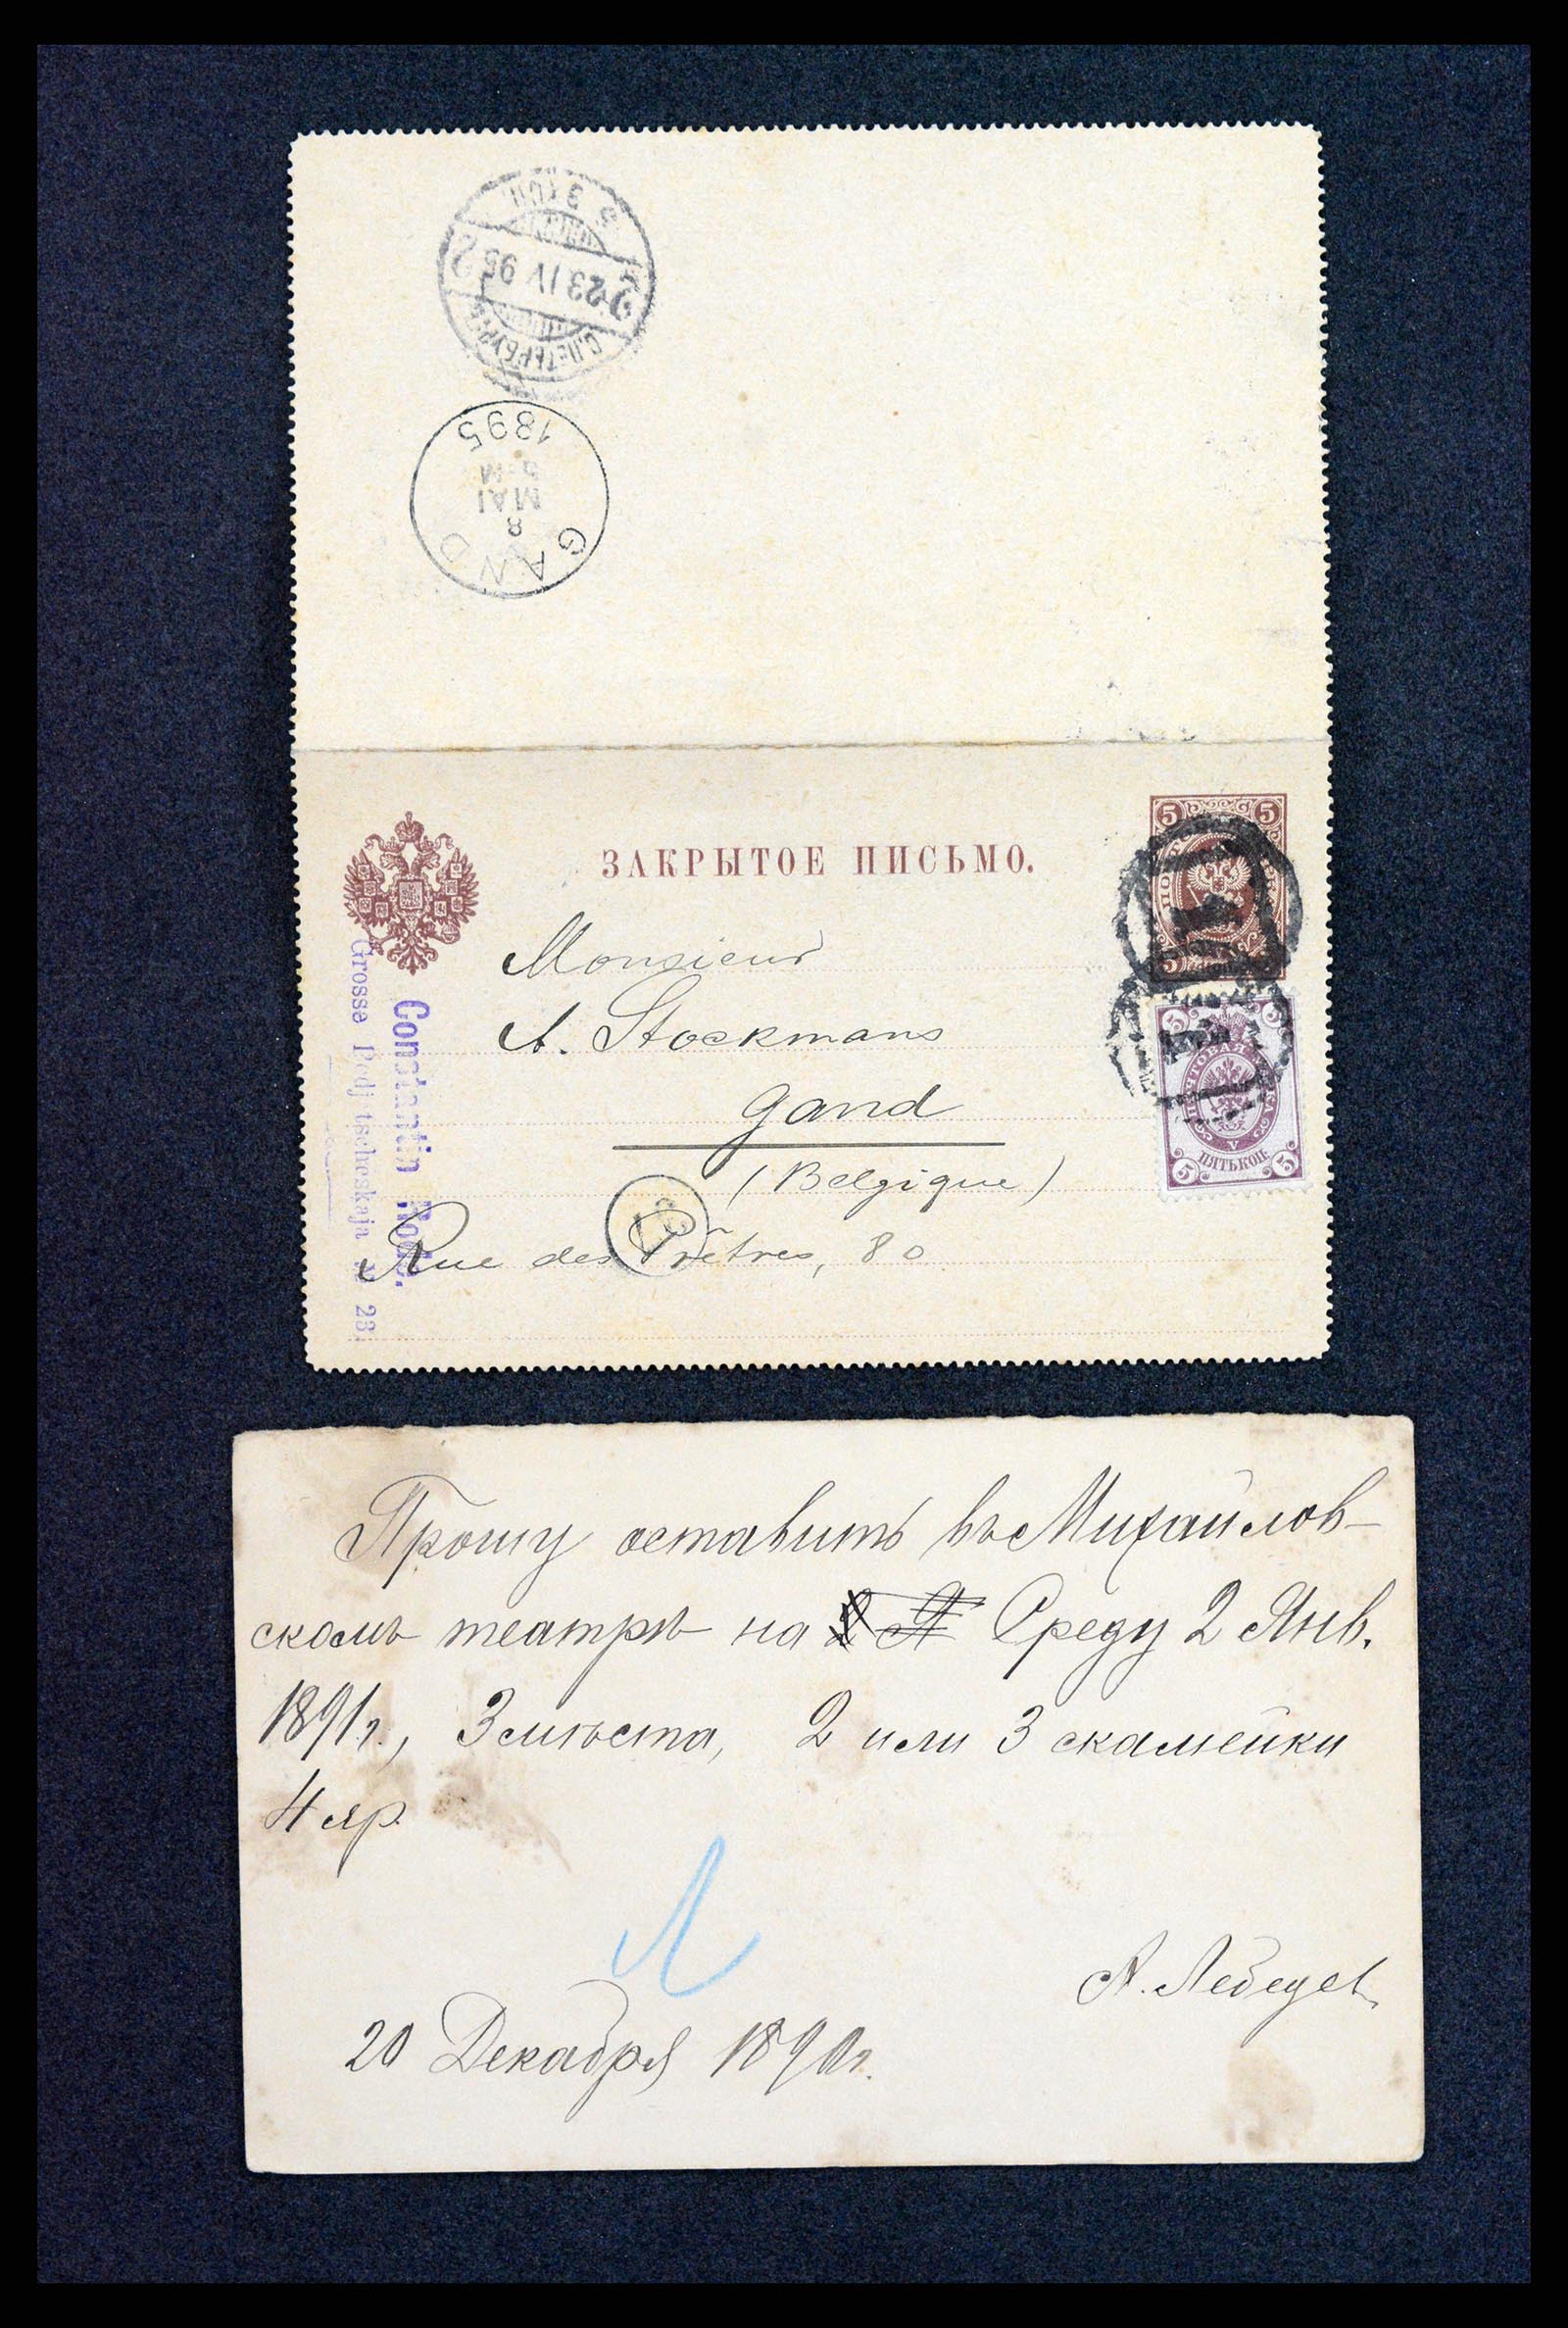 С.ПЕТЕРБУРГЪ
23 IV 95
2 2
GAND
8
MAI
1895
ЗАКРЫТОЕ ПИСЬМО.
5 5
Monsieur
A. Stockmans
Gand
(Belgique)
Rue des Prêtres, 80
5 5
ПЯТЬ КОП.
5 5
Constantin
Grosse 23.
Прошу оставить въ Михайлов-
скомъ театрѣ на Среду 2 Янв.
1891 г., 3 мѣста, 2 или 3 скамейки
4 яр.
Л
А. Лебедев
20 Декабря 1890 г.